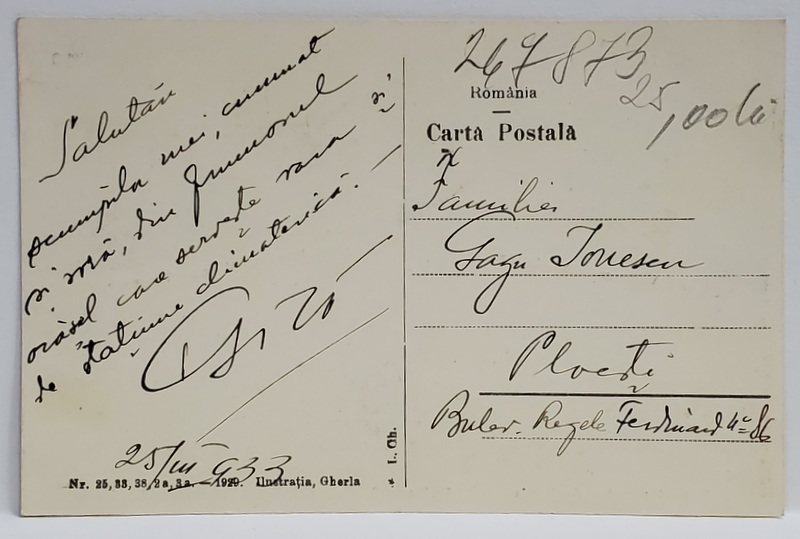 Salutări
scumpilor mei, cumnat
și soră, din frumosul
orășel care servește vara și
de stațiune climaterică. —
25/III 933
Nr. 25, 33, 38, 2a, 3a. — 1929. Ilustrația, Gherla
* I., Gh.
267873
25,00 lei
România
Cartă Poștală
Familiei
Gagu Ionescu
Ploești
Bulev. Regele Ferdinand No 86